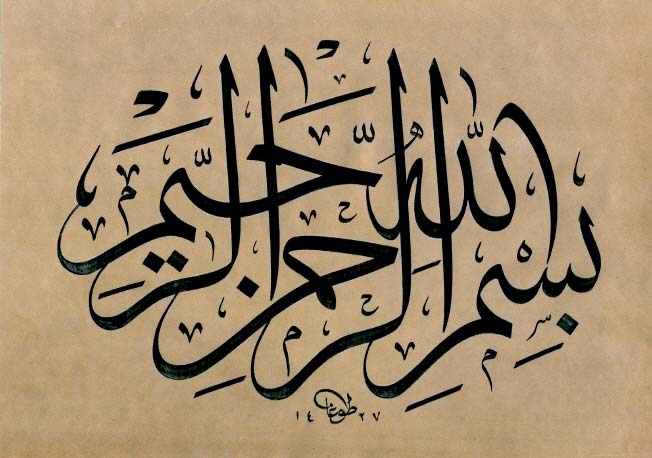 بِسْمِ اللّٰهِ الرَّحْمٰنِ الرَّحِيمِ
١٤٢٧